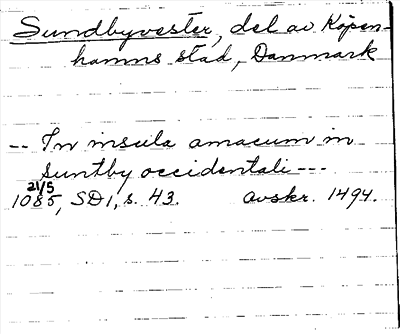 Sundbyvester, del av Köpen-
hamns stad, Danmark
-- In insula amacum in
suntby occidentali ---
21/5
1085, SD1, s. 43. avskr. 1494.